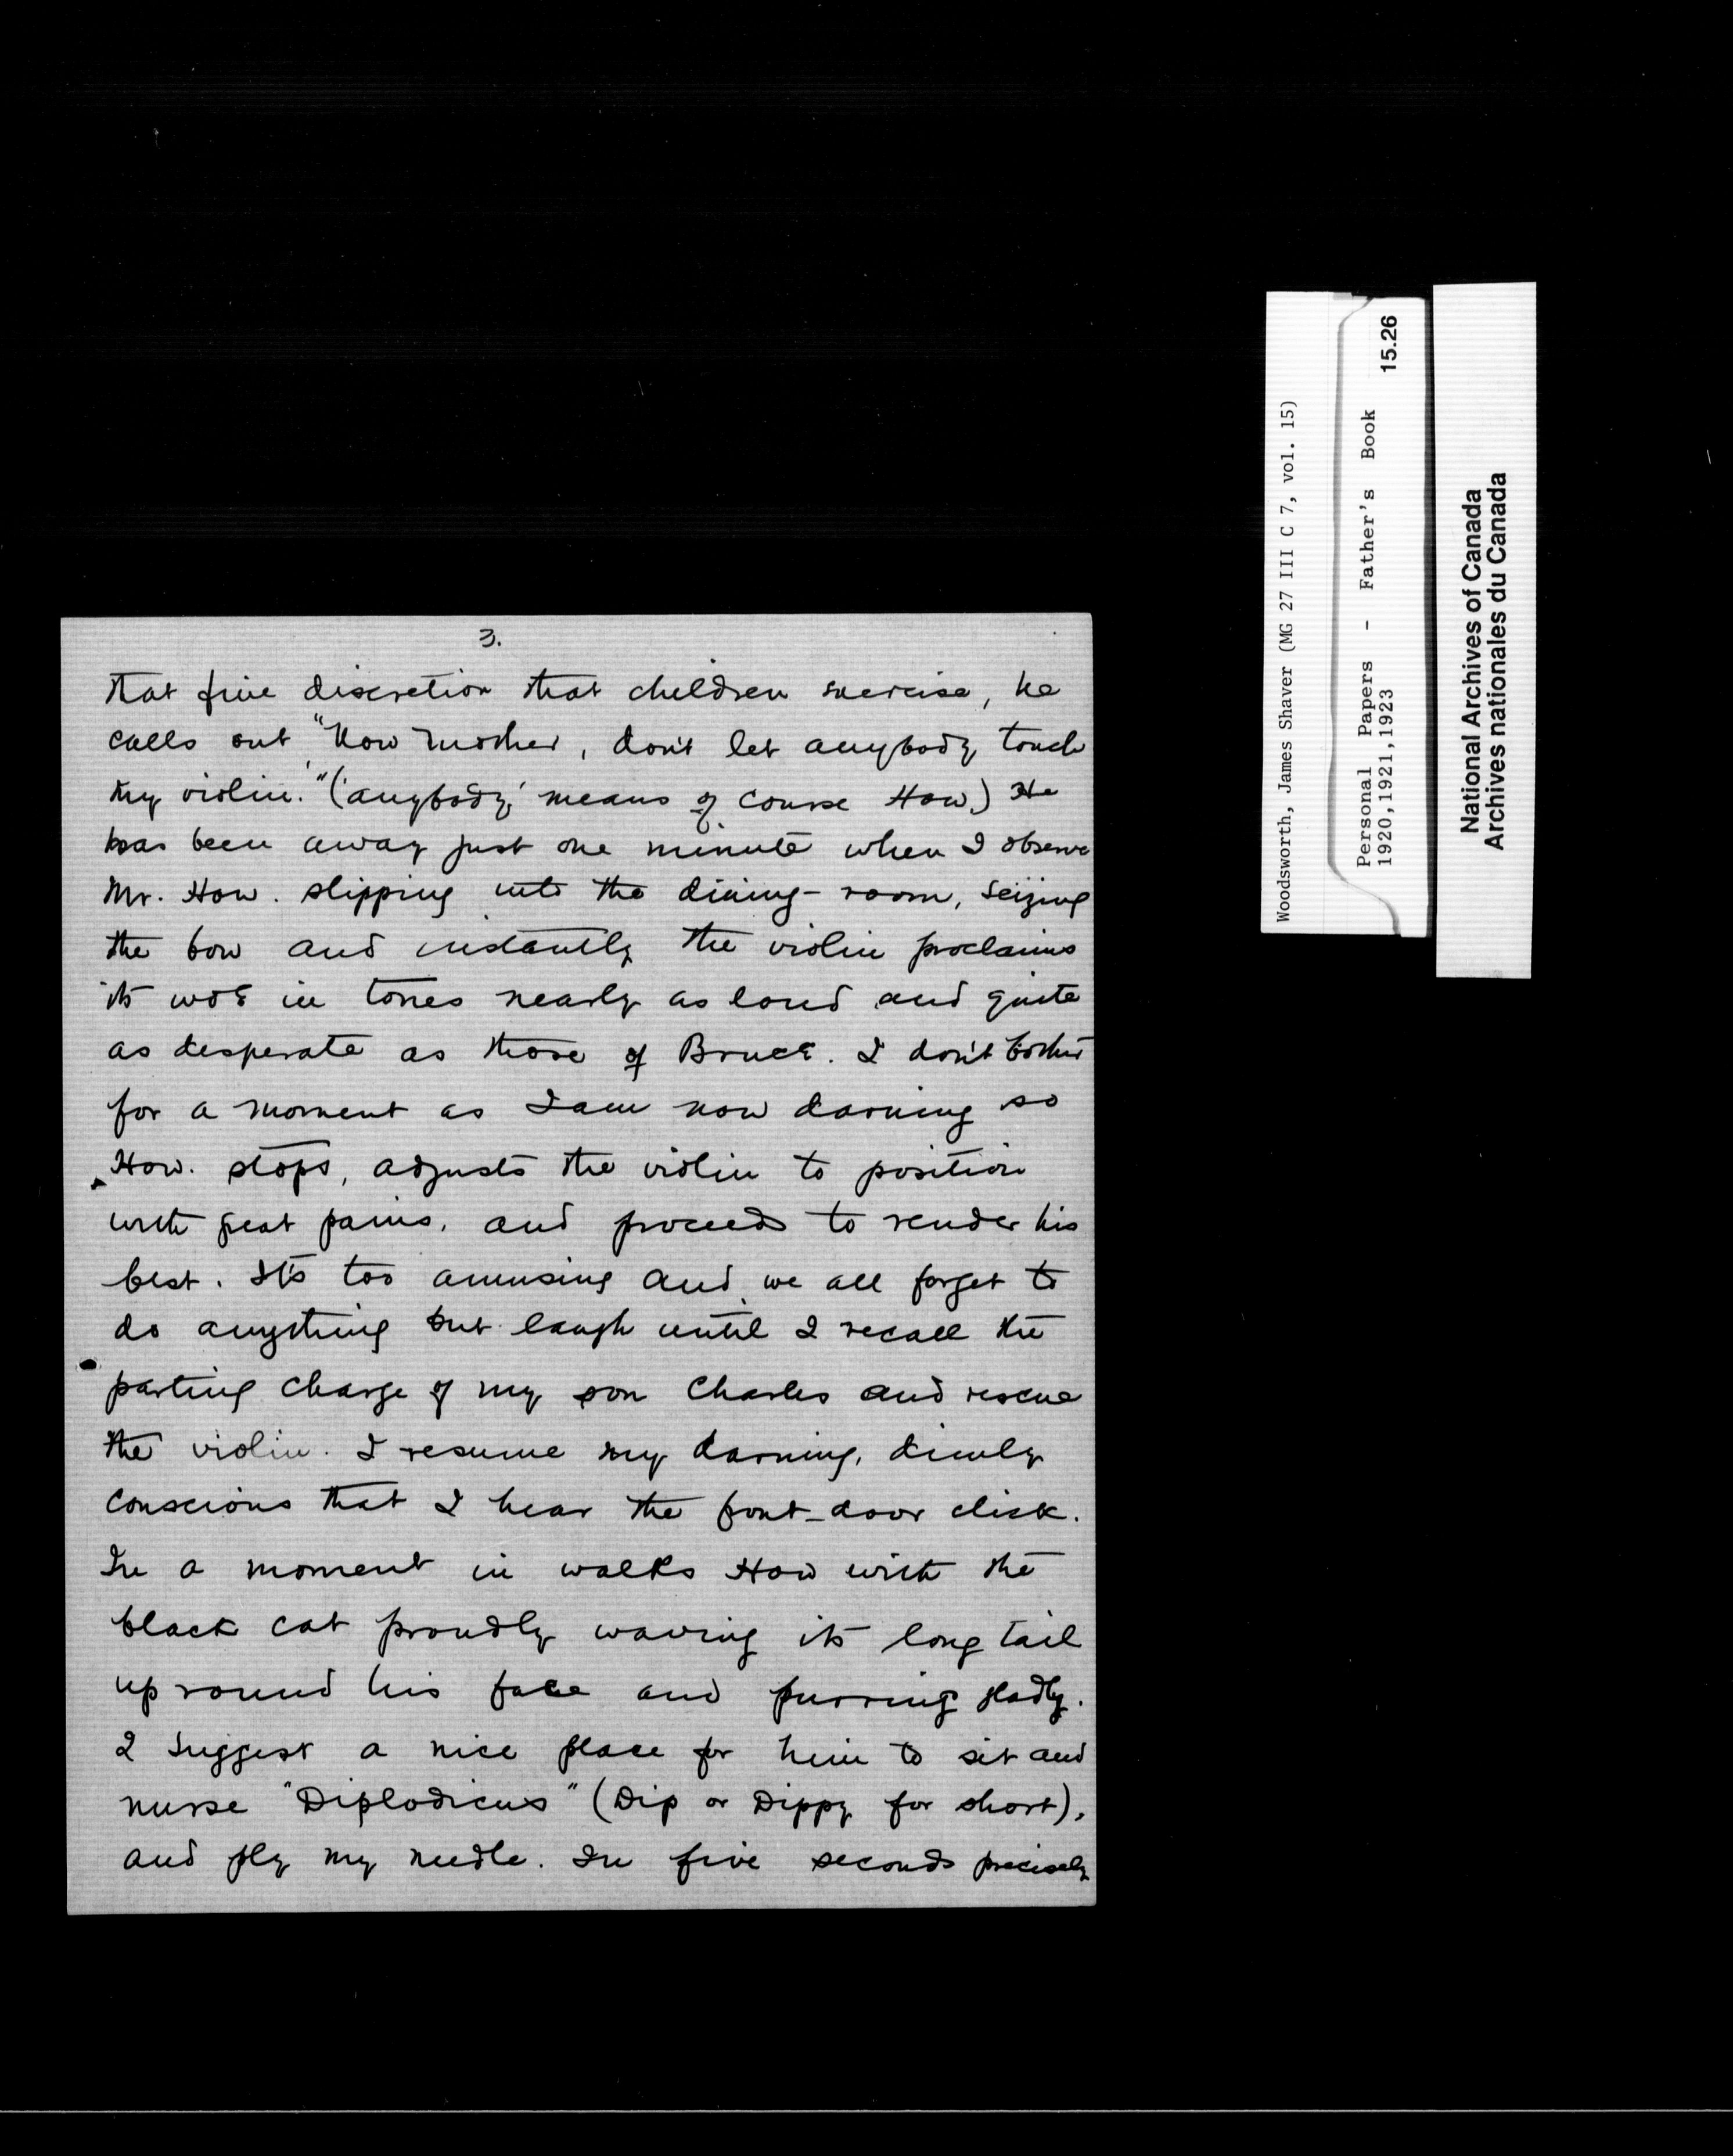 3.
that fine discretion that children exercise, he
calls out "Now Mother, don't let anybody touch
my violin." ('anybody' means of course How.) He
has been away just one minute when I observe
Mr. How. slipping into the dining-room, seizing
the bow and instantly the violin proclaims
its woe in tones nearly as loud and quite
as desperate as those of Bruce. I don't bother
for a moment as I am now darning so
How. stops, adjusts the violin to position
with great pains, and proceeds to render his
best. It's too amusing and we all forget to
do anything but laugh until I recall the
parting charge of my son Charles and rescue
the violin. I resume my darning, dimly
conscious that I hear the front-door click.
In a moment in walks How with the
black cat proudly waving its long tail
up round his face and purring gladly.
I suggest a nice place for him to sit and
nurse "Diplodicus" (Dip or Dippy for short),
and ply my needle. In five seconds precisely
Woodsworth, James Shaver (MG 27 III C 7, vol. 15)
Personal Papers - Father's Book 15.26
1920,1921,1923
National Archives of Canada
Archives nationales du Canada